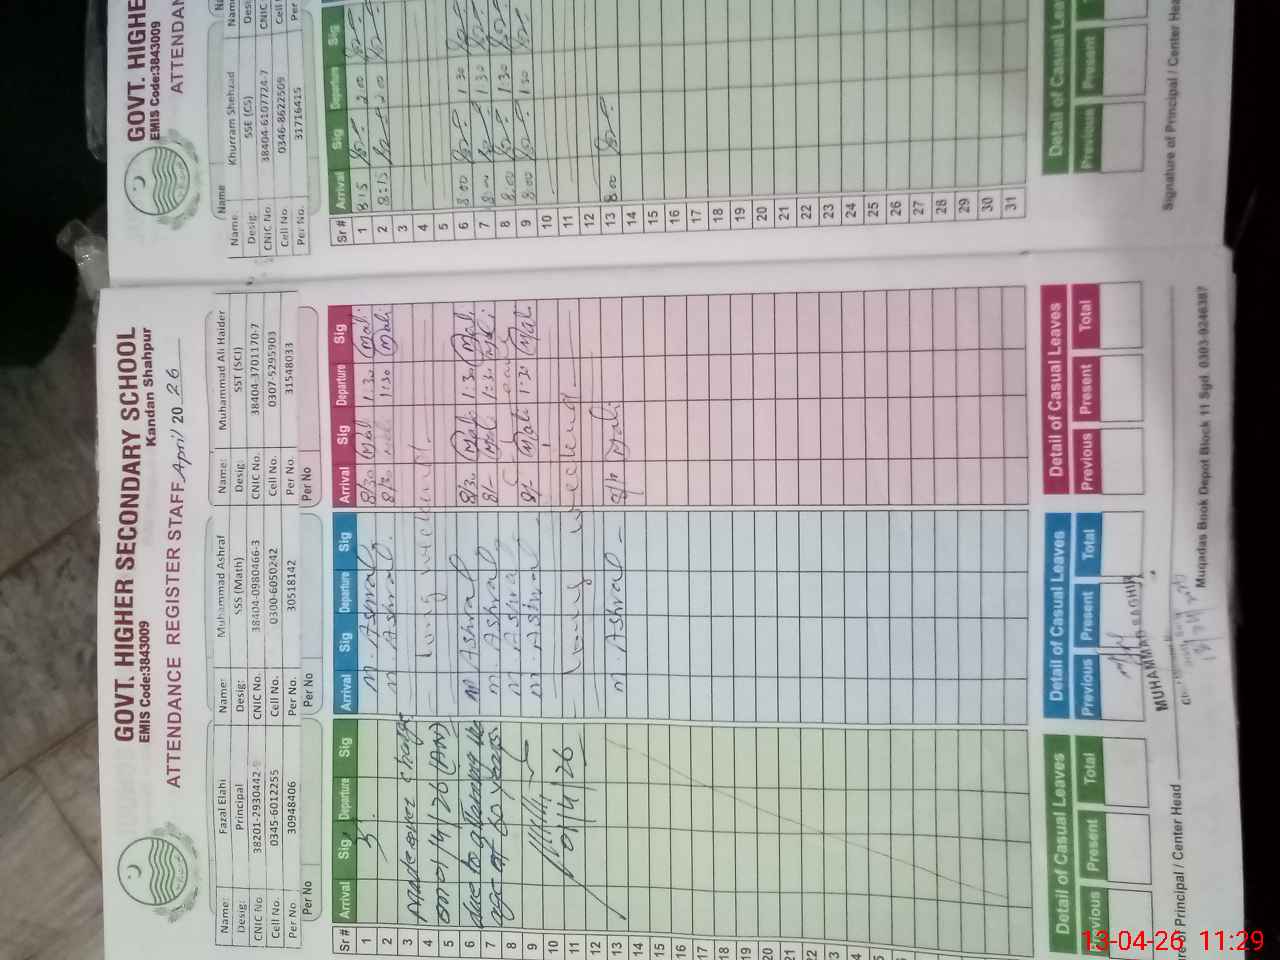 GOVT. HIGHER SECONDARY SCHOOL
EMIS Code:3843009
Kandan Shahpur
ATTENDANCE REGISTER STAFF April 20 26
Name: Fazal Elahi
Desig: Principal
CNIC No. 38201-2930442-
Cell No. 0345-6012255
Per No. 30948406
Per No
Name: Muhammad Ashraf
Desig: SSS (Math)
CNIC No. 38404-0980466-3
Cell No. 0300-6050242
Per No. 30518142
Per No
Name: Muhammad Ali Haider
Desig: SST (SCI)
CNIC No. 38404-3701170-7
Cell No. 0307-5295903
Per No. 31548033
Per No
Sr # Arrival Sig Departure Sig Arrival Sig Departure Sig Arrival Sig Departure Sig
1 M. Ashraf 8/30 Mali 1:30 Mali
2 M. Ashraf 8/30 Mali 1:30 Mali
3 Made over charge
4 on 01/4/26 (AN) Long weekend
5 due to attaining the
6 age of 60 years M Ashraf 8/30 Mali 1:30 Mali
7 M. Ashraf 8/- Mali 1:30 Mali
8 M. Ashraf
9 M. Ashraf 8/- Mali 1:30 Mali
10
11 01/4/26 Long weekend
12
13 M. Ashraf Mali
14
15
16
17
18
19
20
21
22
Detail of Casual Leaves
Previous Present Total
Detail of Casual Leaves
Previous Present Total
Detail of Casual Leaves
Previous Present Total
MUHAMMAD SAGHIR
Signature of Principal / Center Head
Muqadas Book Depot Block 11 Sgd. 0303-9246387
GOVT. HIGHER
EMIS Code:3843009
ATTENDAN
Name
Name: Khurram Shehzad
Desig: SSE (CS)
CNIC No. 38404-6107724-7
Cell No 0346-8622509
Per No. 31716415
Sr # Arrival Sig Departure Sig
1 8:15 2:00
2 8:15 2:00
3
4
5
6 8:00 1:30
7 8:00 1:30
8 8:00 1:30
9 8:00 1:30
10
11
12
13 8:00
14
15
16
17
18
19
20
21
22
23
24
25
26
27
28
29
30
31
Detail of Casual Lea
Previous Present
Signature of Principal / Center Hea
13-04-26 11:29